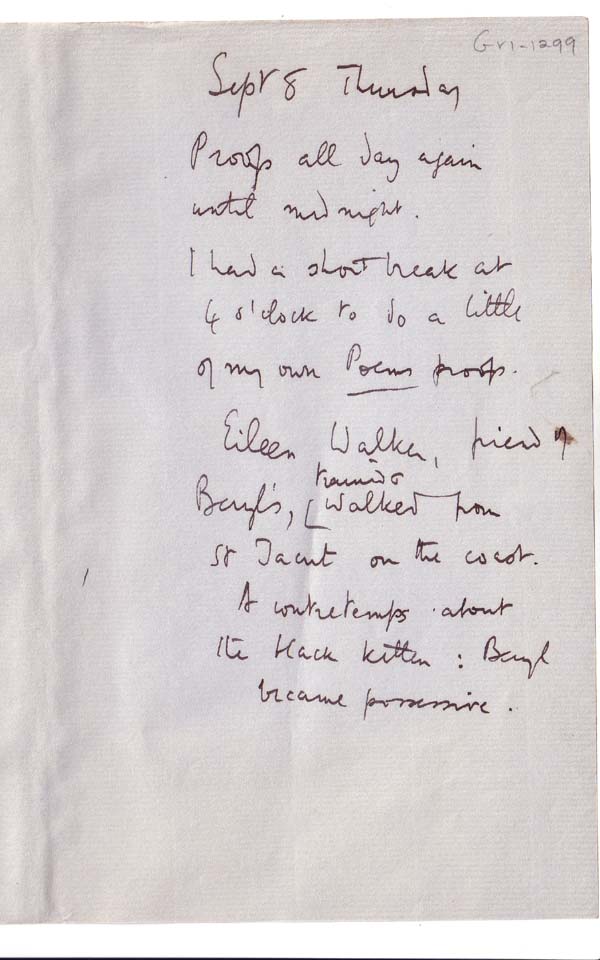 Gr1-1299
Sept 8 Thursday
Proofs all day again
until midnight.
I had a short break at
4 o'clock to do a little
of my own Poems proofs.
Eileen Walker, friend of
trained &
Beryl's, walked from
St Jacut on the coast.
A contretemps about
the black kitten: Beryl
became possessive.